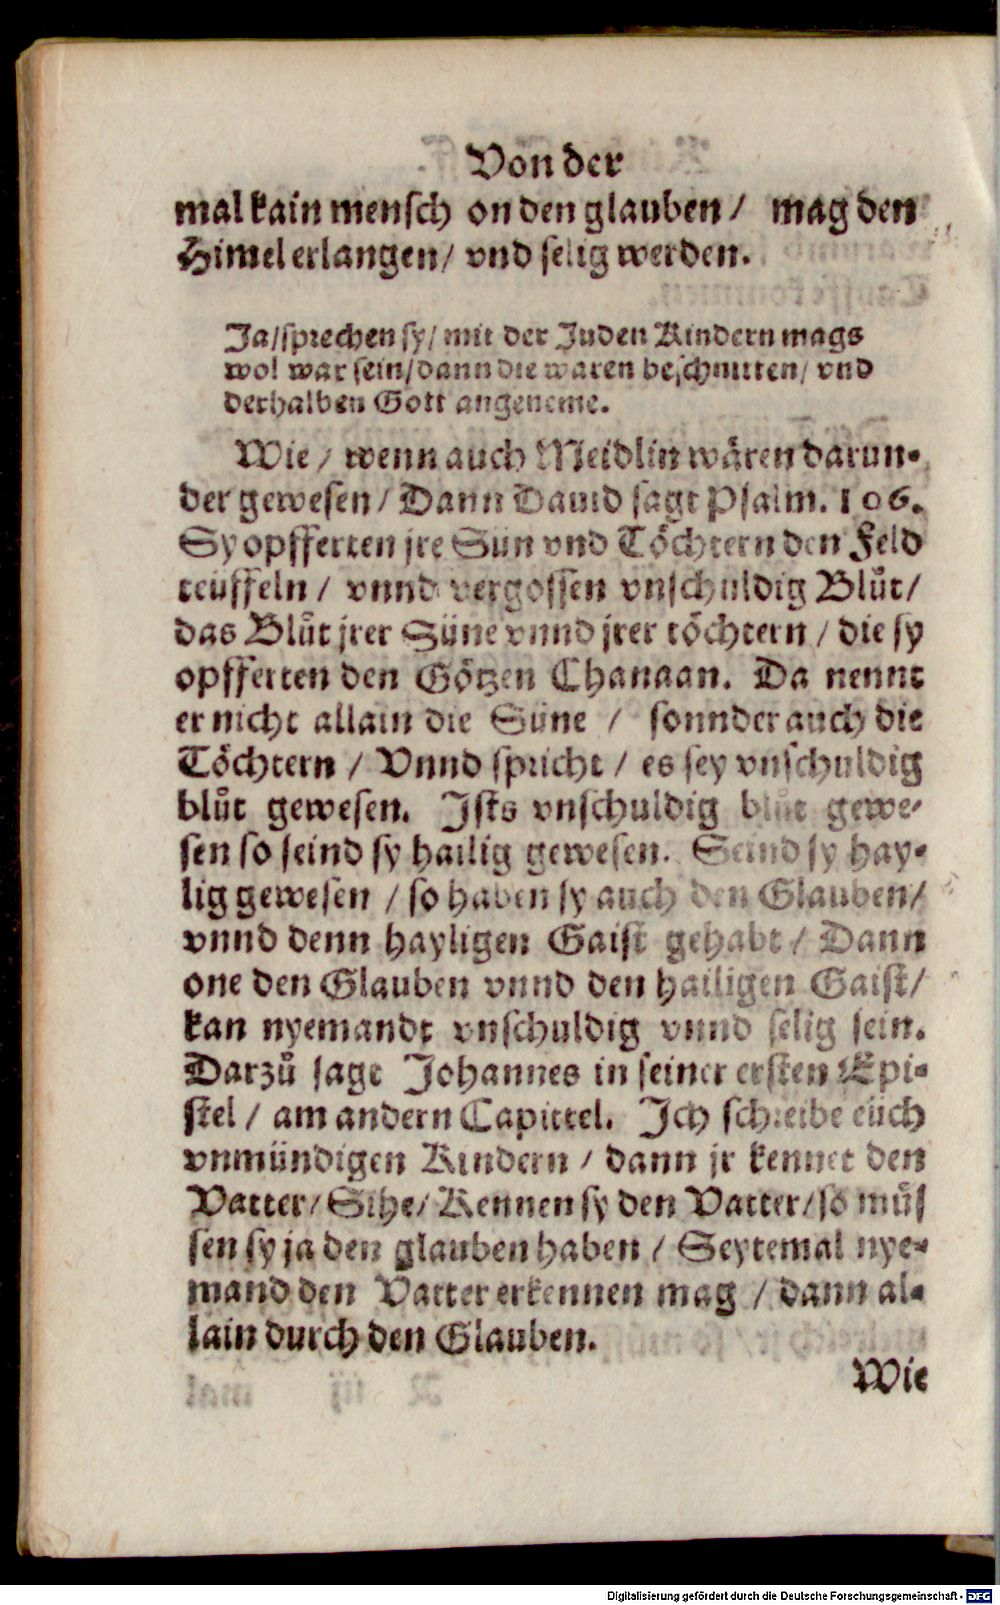 Von der
mal kain mensch on den glauben / mag den
Himel erlangen / vnd selig werden.
Ja / sprechen sy / mit der Juden Kindern mags
wol war sein / dann die waren beschnitten / vnd
derhalben Gott angeneme.
Wie / wenn auch Meidlin wären darun-
der gewesen / Dann Dauid sagt Psalm. 106.
Sy opfferten jre Sün vnd Töchtern den Feld
teüffeln / vnnd vergossen vnschuldig Blůt /
das Blůt jrer Süne vnnd jrer töchtern / die sy
opfferten den Götzen Chanaan. Da nennt
er nicht allain die Süne / sonnder auch die
Töchtern / Vnnd spricht / es sey vnschuldig
blůt gewesen. Ists vnschuldig blůt gewe-
sen so seind sy hailig gewesen. Seind sy hay-
lig gewesen / so haben sy auch den Glauben /
vnnd denn hayligen Gaist gehabt / Dann
one den Glauben vnnd den hailigen Gaist /
kan nyemandt vnschuldig vnnd selig sein.
Darzů sagt Johannes in seiner ersten Epi-
stel / am andern Capittel. Ich schreibe eüch
vnmündigen Kindern / dann jr kennet den
Vatter / Sihe / Kennen sy den Vatter / so můs
sen sy ja den glauben haben / Seytemal nye-
mand den Vatter erkennen mag / dann al-
lain durch den Glauben.
Wie
Digitalisierung gefördert durch die Deutsche Forschungsgemeinschaft - DFG